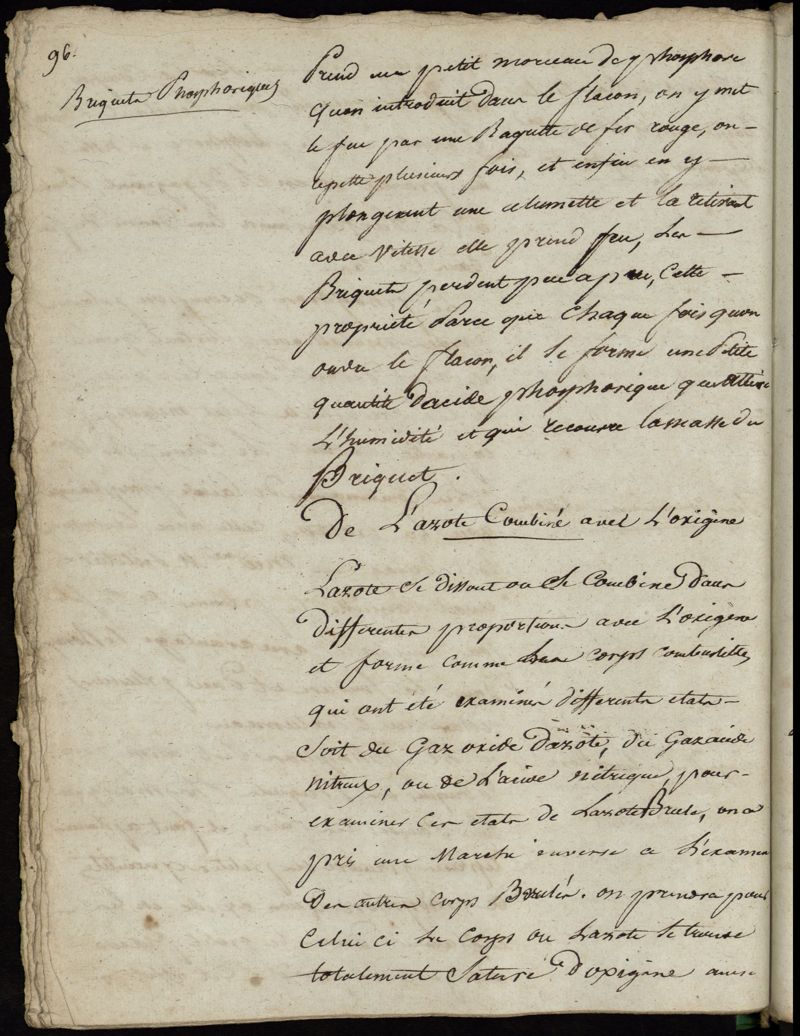 96.
Briquets Phosphoriques
Prend un petit morceau de phosphore
quon introduit dans le flacon, on y met
le feu par une Baguette de fer rouge, on
repette plusieurs fois, et enfin en y
plongeant une alumette et la retirant
avec vitesse elle prend feu, Les
Briquets perdent peu a peu, Cette
propriété Parce que Chaque fois quon
ouvre le flacon, il se forme une Petite
quantité dacide phosphorique qui attire
L'humidité et qui recouvre la masse du
Briquet.
De L'azote Combiné avec L'oxigène
Lazote se dissout ou se Combine Dans
differentes proportions avec L'oxigène
et forme comme les corps combustibles
qui ont été examinés differents etats
Soit du Gaz oxide dazote, du Gaz acide
nitreux, ou de L'acide nitrique, pour
examiner ces etats de Lazote Brulé, on a
pris une Marche inverse a L'examen
Des autres corps Brulés. on prendra pour
Celui ci Le Corps ou Lazote se trouve
totalement Saturé D'oxigène